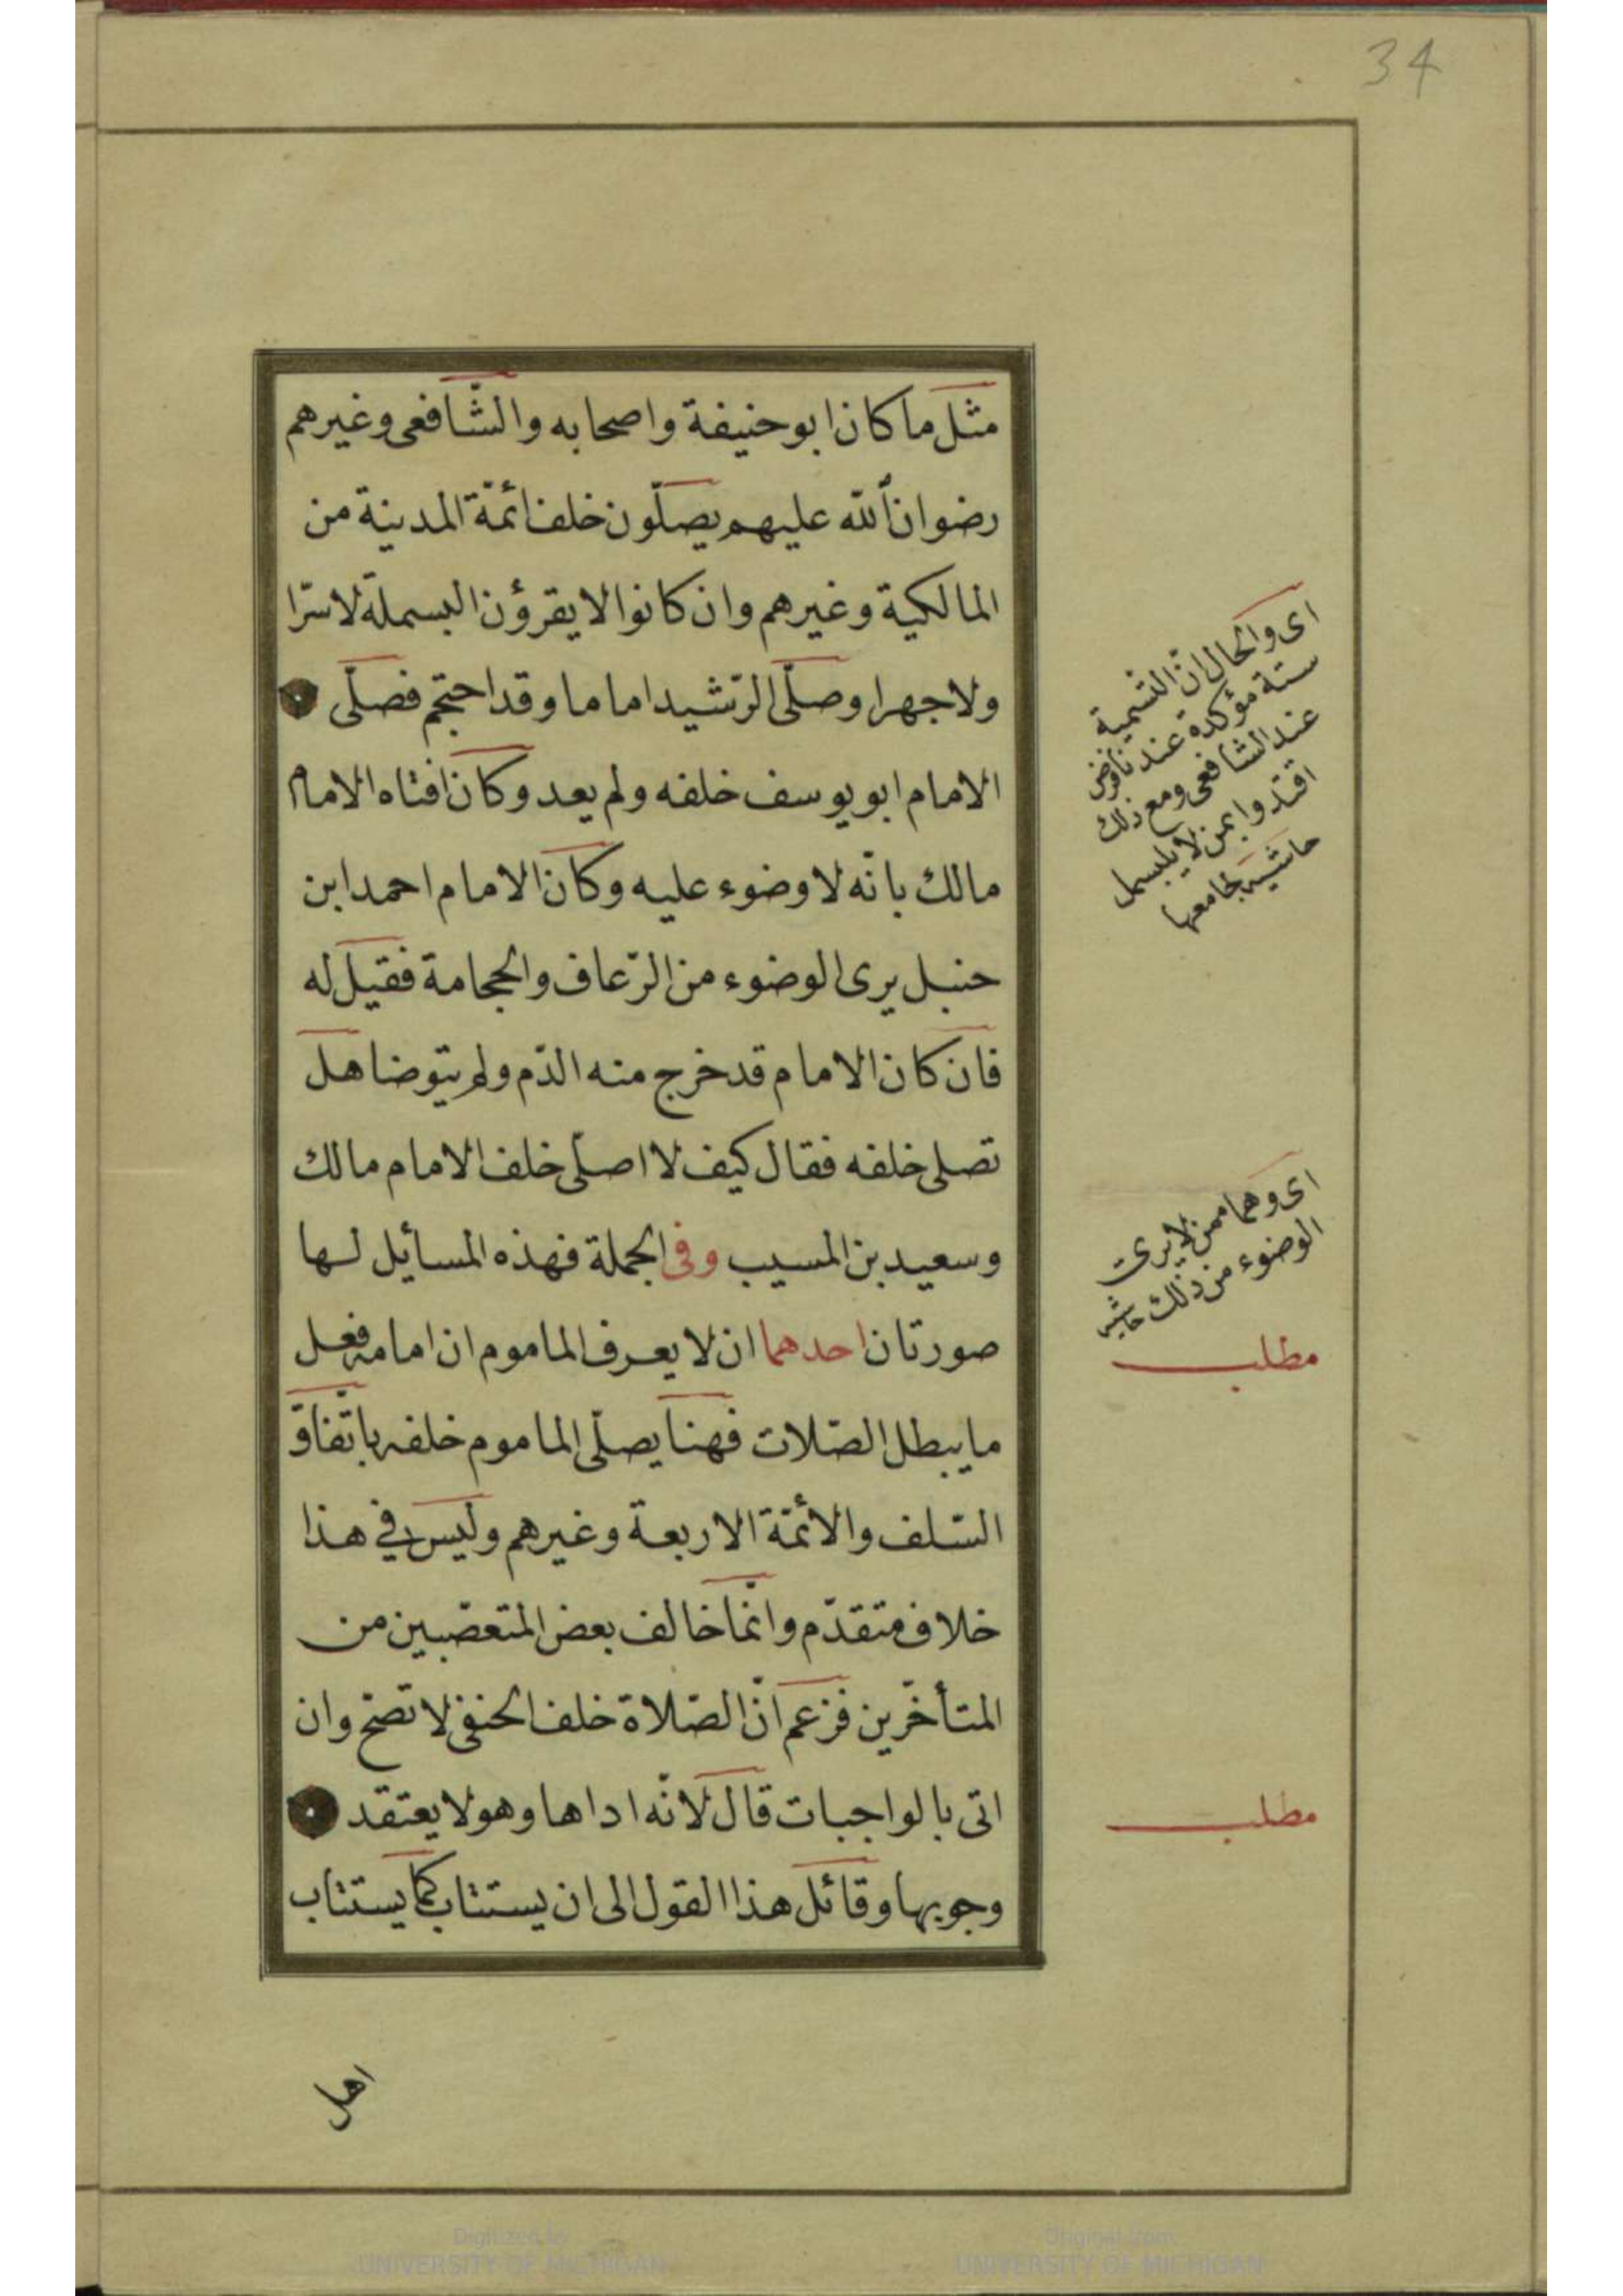 34
مثل ما كان ابو حنيفة واصحابه والشّافعى وغيرهم
رضوان ألله عليهم يصلّون خلف ائمّة المدينة من
المالكية وغيرهم وان كانوا لا يقرؤن البسملة لا سرّا
ولا جهرا وصلّى الرّشيد اماما وقد احتجم فصلّى
الامام ابو يوسف خلفه ولم يعد وكان افتاه الامام
مالك بانّه لا وضوء عليه وكان الامام احمد ابن
حنبل يرى الوضوء من الرّعاف والحجامة فقيل له
فان كان الامام قد خرج منه الدّم ولم يتوضا هل
تصلى خلفه فقال كيف لا اصلّى خلف الامام مالك
وسعيد بن المسيب وفى الجملة فهذه المسايل لها
صورتان احدهما ان لا يعرف الماموم ان امامه فعل
ما يبطل الصّلات فهنا يصلّى الماموم خلفه باتّفاق
السّلف والأئمّة الاربعة وغيرهم وليس فى هذا
خلاف متقدّم وانّما خالف بعض المتعصّبين من
المتأخّرين فزعم انّ الصّلاة خلف الحنفى لا تصحّ وان
اتى بالواجبات قال لانّه اداها وهو لا يعتقد
وجوبها وقائل هذا القول الى ان يستتاب كما يستتاب
اهل
اى والحال انّ التّسمية
سنّة مؤكدة عندنا وفرض
عند الشافعى ومع ذلك
اقتدوا بمن لا يبسمل
حاشيه لجامعها
اى وهما ممن لا يرى
الوضوء من ذلك حاشيه
مطلب
مطلب
Digitized by
UNIVERSITY OF MICHIGAN
Original from
UNIVERSITY OF MICHIGAN